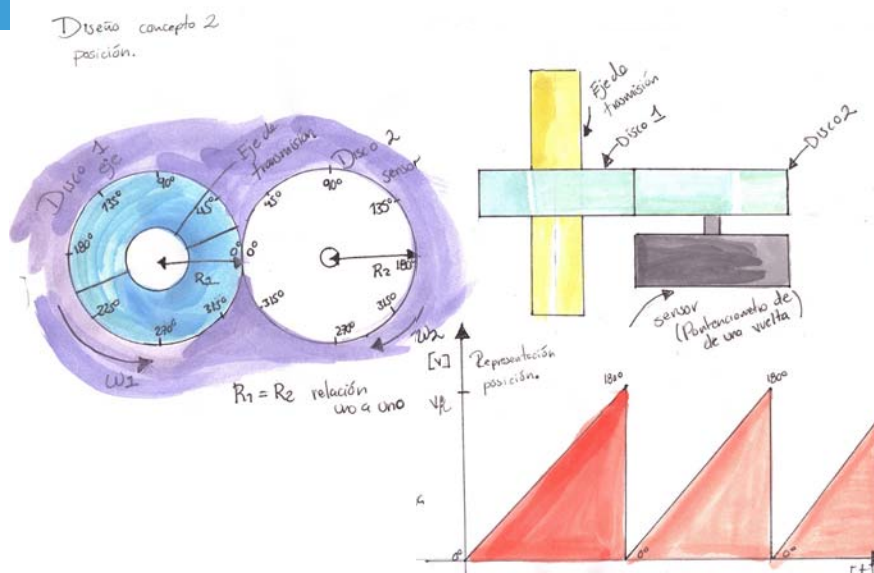 Diseño concepto 2
posición.
Disco 1
eje
Eje de
transmisión
Disco 2
sensor
90°
135°
45°
180°
0°
225°
270°
315°
R1
90°
45°
135°
0°
180°
315°
315°
270°
R2
W1
W2
R1 = R2 relación
uno a uno
Eje de
transmisión
Disco 1
Disco 2
sensor
(Pontenciometro de
de una vuelta)
[v]
Representación
posición.
180°
180°
0°
0°
0°